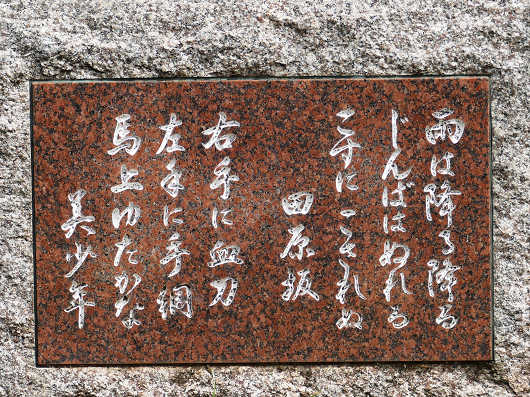 雨は降る降る
じんばはぬれる
こすにこされぬ
田原坂
右手に血刀
左手に手綱
馬上ゆたかな
美少年